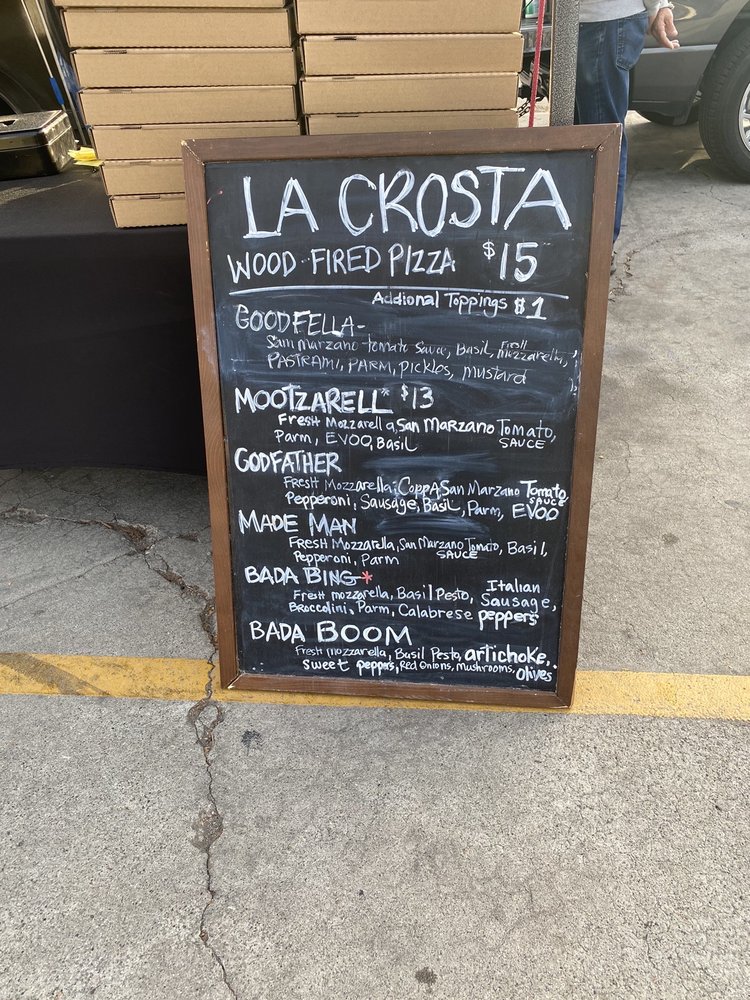 LA CROSTA
WOOD-FIRED PIZZA $15
Addional Toppings $1
GOODFELLA-
San marzano tomato Sauce, Basil, Fresh mozzarella,
PASTRAMI, PARM, pickles, mustard
MOOTZARELL* $13
Fresh Mozzarella, San MARZANO Tomato,
Parm, EVOO, Basil SAUCE
GODFATHER
Fresh Mozzarella, COPPA, San Marzano Tomato
Pepperoni, Sausage, Basil, Parm, EVOO SAUCE
MADE MAN
Fresh Mozzarella, San Marzano Tomato, Basil,
Pepperoni, Parm SAUCE
BADA BING*
Fresh mozzarella, Basil Pesto, Italian
Broccolini, Parm, Calabrese Sausage,
peppers
BADA BOOM
Fresh Mozzarella, Basil Pesto, artichoke,
sweet peppers, Red Onions, Mushrooms, Olives